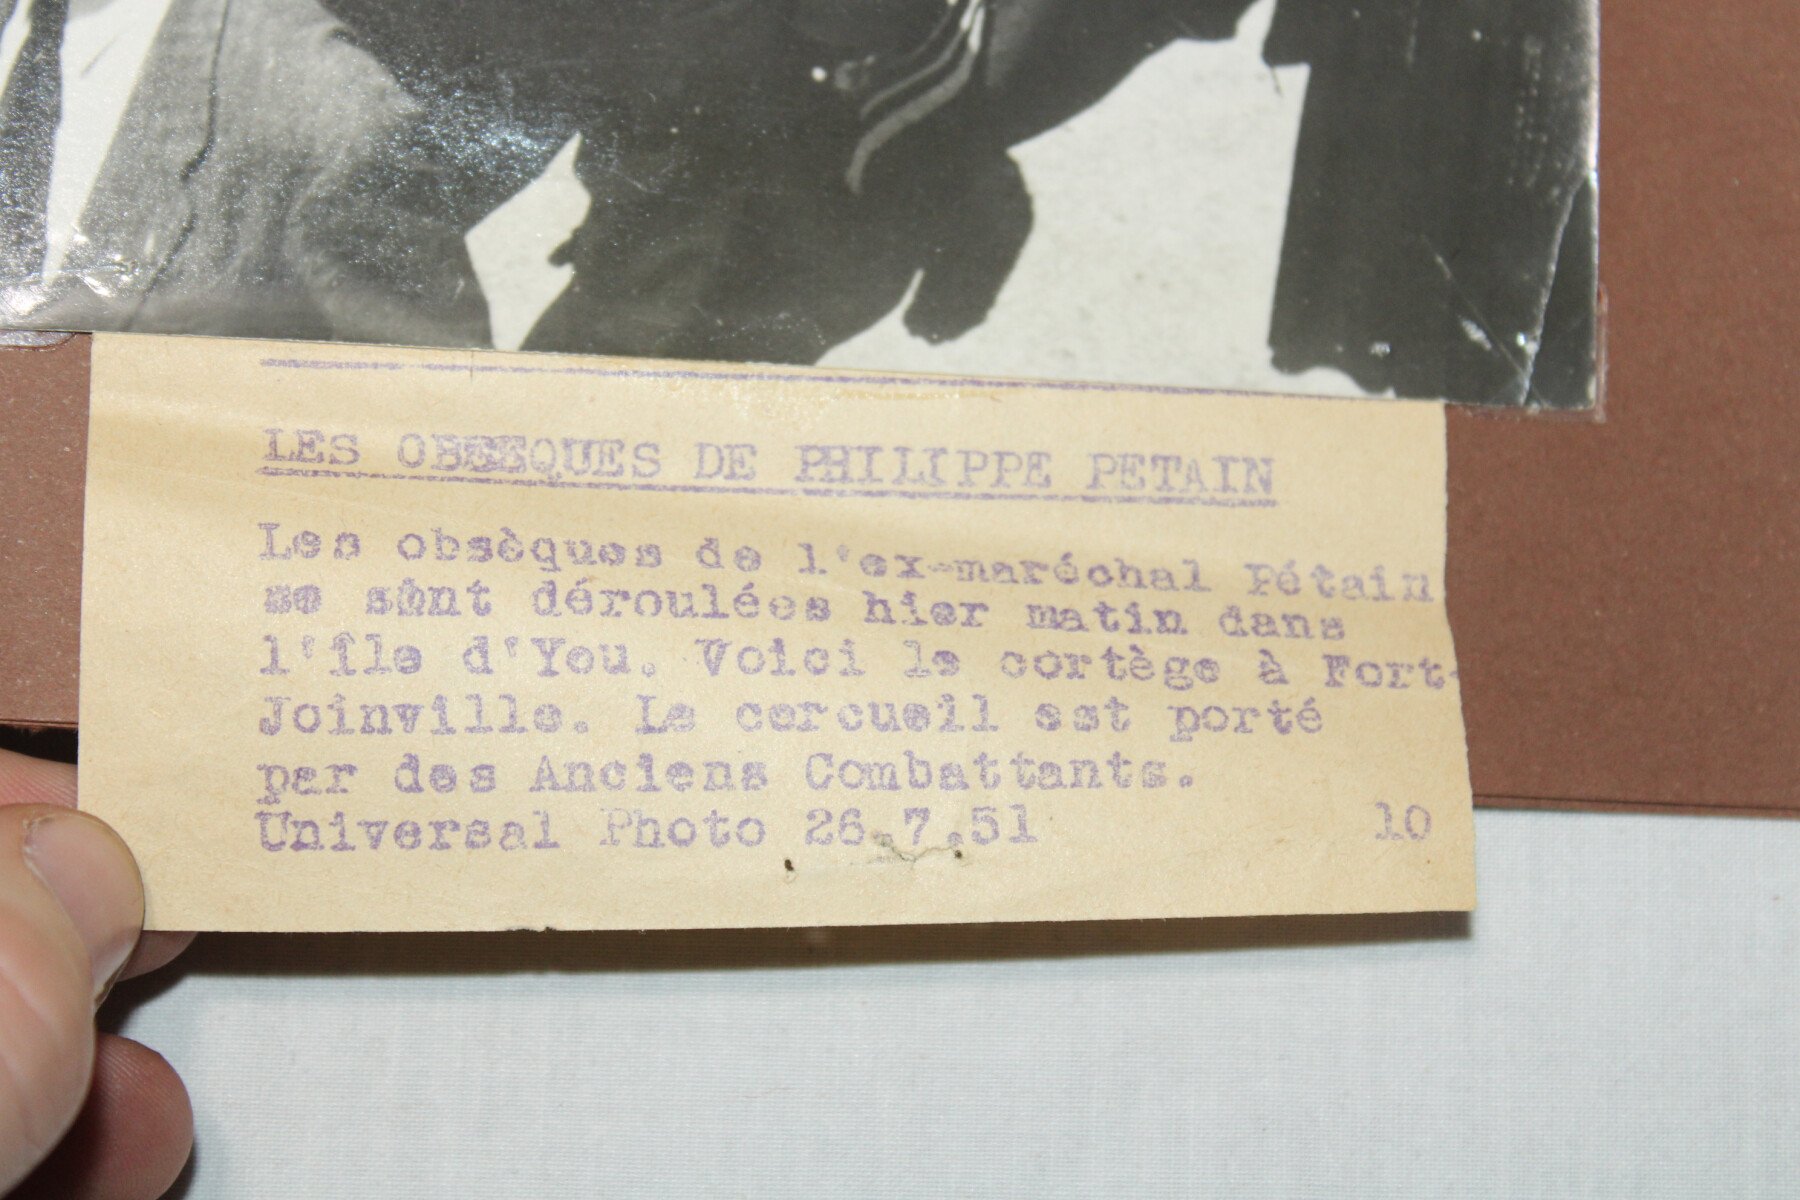 LES OBSEQUES DE PHILIPPE PETAIN
Les obsèques de l'ex-maréchal Pétain
se sont déroulées hier matin dans
l'île d'Yeu. Voici le cortège à Fort-
Joinville. Le cercueil est porté
par des Anciens Combattants.
Universal Photo 26.7.51 10